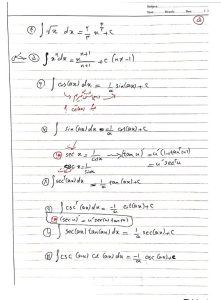 Subject:
Year. Month. Date.
۴) ∫ √x dx = ۲/۳ x^(۳/۲) + c
۵) ∫ x^n dx = x^(n+1)/(n+1) + c (n ≠ -1)
∫ cos(ax) dx = 1/a sin(ax) + c
∫ sin(ax) dx = -1/a cos(ax) + c
sec x = 1/cosx (tan u)' = u'(1+tan²u)
csc x = 1/sinx = u' sec²u
۸) ∫ sec²(ax) dx = 1/a tan(ax) + c
۹) ∫ csc²(ax) dx = -1/a cot(ax) + c
(sec u)' = u' sec(u) tan(u)
∫ sec(ax) tan(ax) dx = 1/a sec(ax) + c
∫ csc(ax) cot(ax) dx = -1/a csc(ax) + c